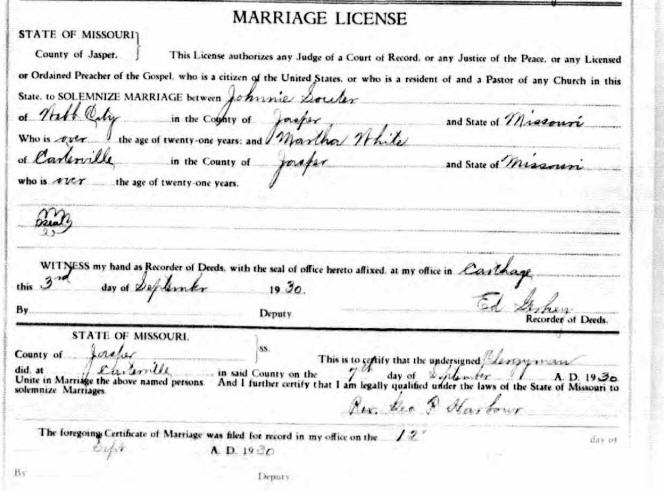 MARRIAGE LICENSE
STATE OF MISSOURI
County of Jasper. This License authorizes any Judge of a Court of Record, or any Justice of the Peace, or any Licensed
or Ordained Preacher of the Gospel, who is a citizen of the United States, or who is a resident of and a Pastor of any Church in this
State, to SOLEMNIZE MARRIAGE between Johnnie Souter
of Webb City in the County of Jasper and State of Missouri
Who is over the age of twenty-one years: and Martha White
of Carterville in the County of Jasper and State of Missouri
who is over the age of twenty-one years.
Seal
WITNESS my hand as Recorder of Deeds, with the seal of office hereto affixed, at my office in Carthage
this 3rd day of September 1930.
Ed
By Deputy Recorder of Deeds.
STATE OF MISSOURI, ss.
County of Jasper This is to certify that the undersigned Clergyman
did, at Carterville in said County on the 7th day of September A. D. 1930
Unite in Marriage the above named persons. And I further certify that I am legally qualified under the laws of the State of Missouri to
solemnize Marriages.
Rev. Geo P Harbour
The foregoing Certificate of Marriage was filed for record in my office on the 12" day of
Sept A. D. 1930
By Deputy.